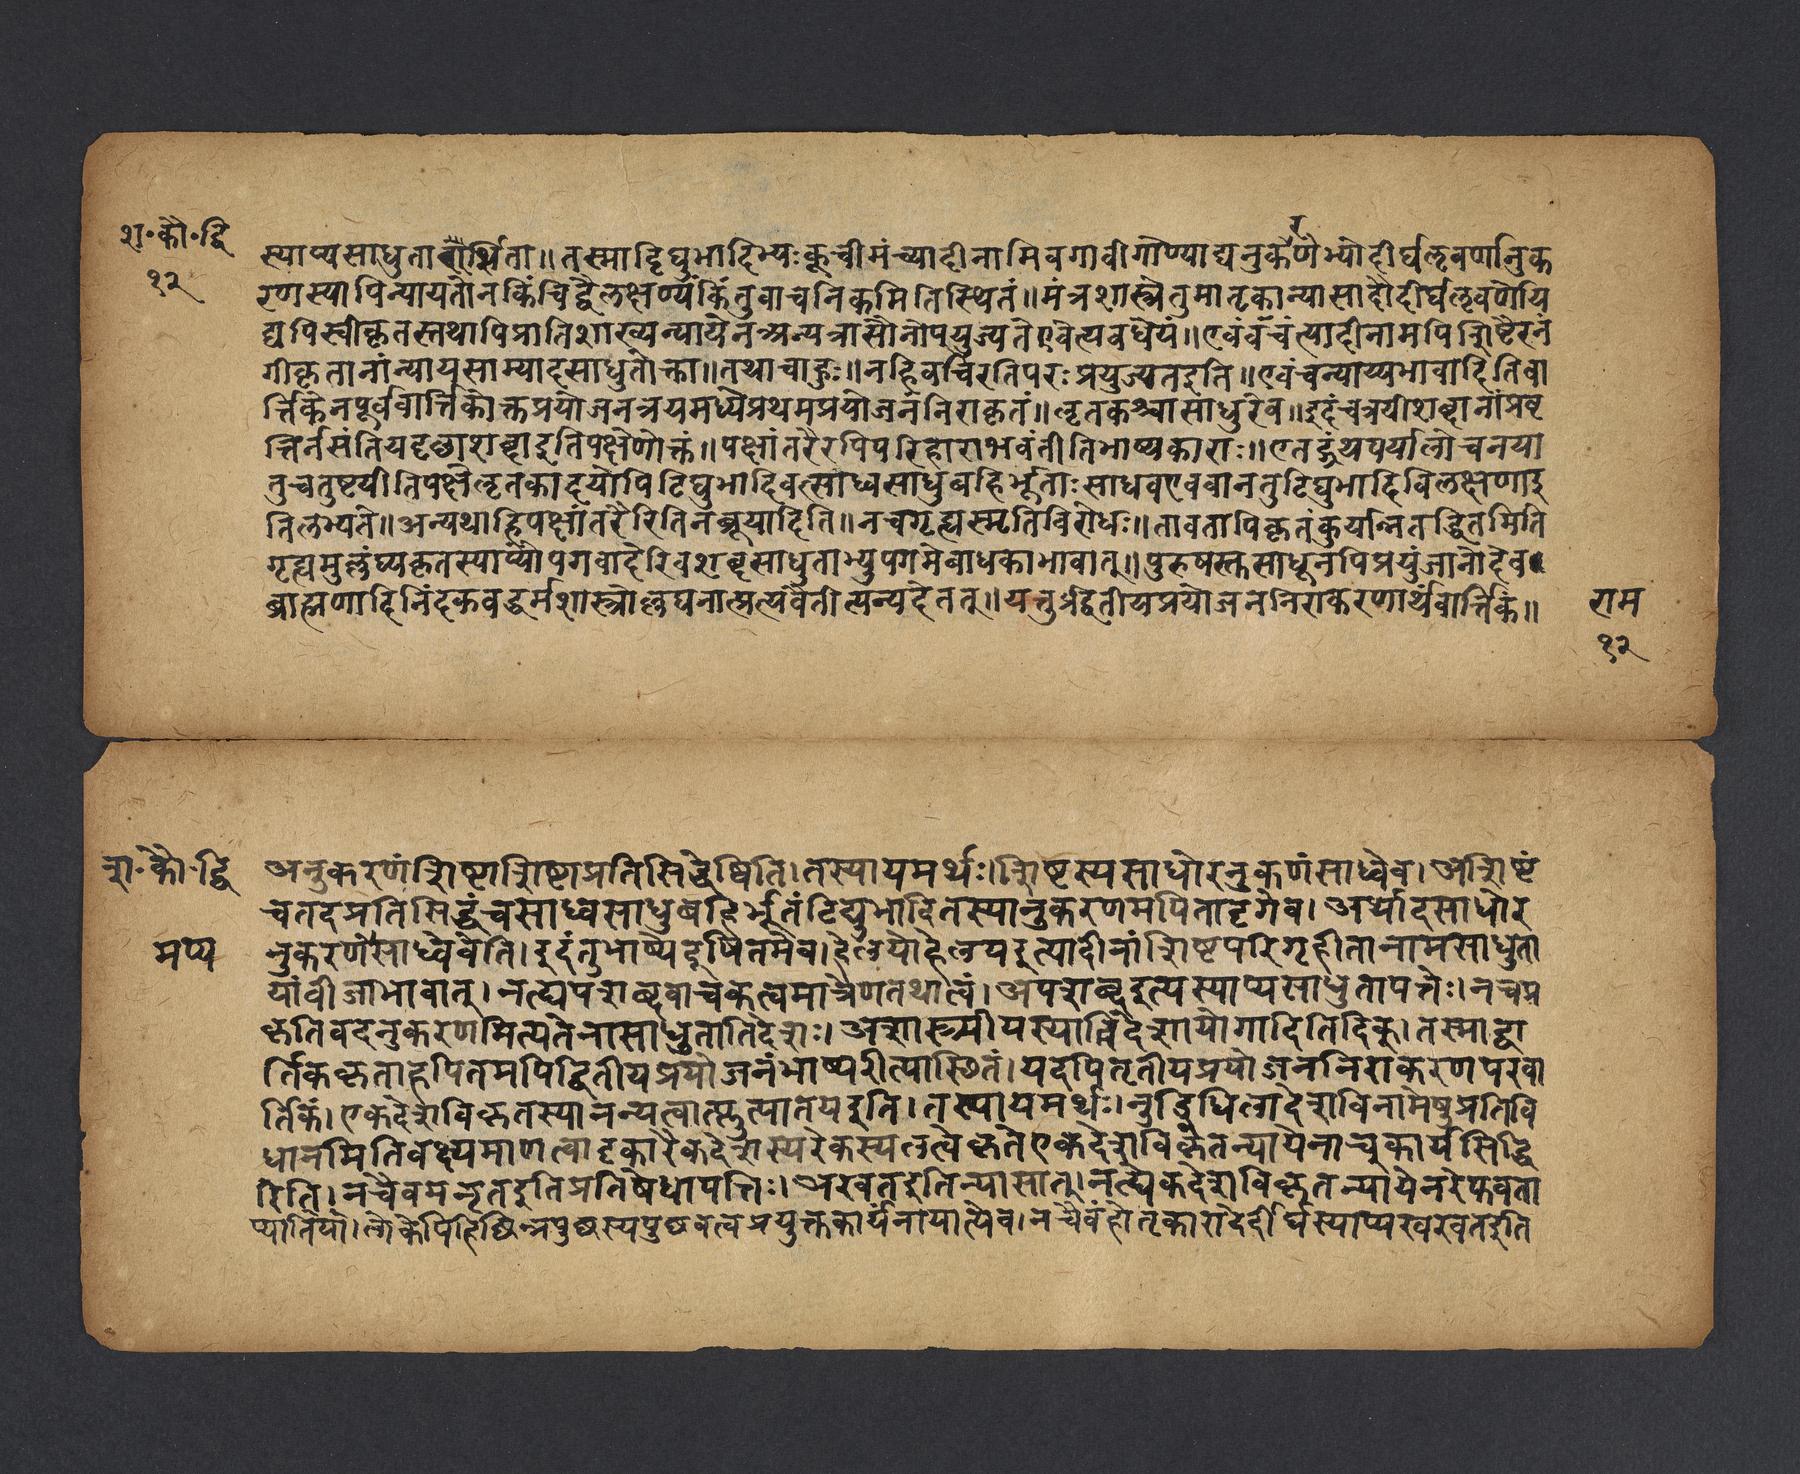 श॰कौ॰द्वि
१२
स्याप्यसाधुता ॥तस्माट्टिघुभादिभ्यःकूचीमंच्यादीनामिवगावीगौण्याद्यनुकर्णेभ्योदीर्घॡवर्णानुक
रणस्यापिन्यायतोनकिंचिद्वैलक्षण्यंकिंतुवाचनिकमितिस्थितं॥मंत्रशास्त्रेतुमातृकान्यासादौदीर्घॡवर्णोय
द्यपिस्वीकृतस्तथापिप्रातिशाख्यन्यायेनअन्यत्रासौनोपयुज्यतेएवेत्यवधेयं॥एवंवंचंत्यादीनामपिशिष्टैरनं
गीकृतानांन्यायसाम्यादसाधुतोक्ता॥तथाचाहुः॥नहिवचिरंतिपरःप्रयुज्यतइति॥एवंचन्याय्यभावादितिवा
र्त्तिकेनपूर्ववार्त्तिकोक्तप्रयोजनत्रयमध्येप्रथमप्रयोजनंनिराकृतं॥ऌतकश्चासाधुरेव॥इदंचत्रयीशब्दानांप्रवृ
त्तिर्नसंतियदृछाशब्दाइतिपक्षेणोक्तं॥पक्षांतरैरपिपरिहाराभवंतीतिभाष्यकाराः॥एतद्ग्रंथपर्यालोचनया
तुचतुष्टयीतिपक्षेऌतकादयोपिटिघुभादिवत्साध्वसाधुबहिर्भूताःसाधवएववानतुटिघुभादिविलक्षणाइ
तिलभ्यते॥अन्यथाहिपक्षांतरैरितिनब्रूयादिति॥नचगृह्यस्मृतिविरोधः॥तावतापिकृतंकुर्यान्नतद्धितमिति
गृह्यमुल्लंघ्यकृतस्याप्यौपगवादेरिवशब्दसाधुताभ्युपगमेबाधकाभावात्॥पुरुषस्त्वसाधूनपिप्रयुंजानोदेव
ब्राह्मणादिनिंदकवद्धर्मशास्त्रोल्लंघनात्प्रत्यवैतीत्यन्यदेतत्॥यत्तु द्वितीयप्रयोजननिराकरणार्थंवार्त्तिकं॥
राम
१२
शा॰कौ॰द्वि
अनुकरणंशिष्टाशिष्टाप्रतिसिद्धेष्विति।तस्यायमर्थः।शिष्टस्यसाधोरनुकर्णंसाध्वेव।अशिष्टं
चतदप्रतिसिद्धंचसाध्वसाधुबहिर्भूतंटिघुभादितस्यानुकरणमपितादृगेव।अर्थादसाधोर
मप्य
नुकरणंसाध्वेवेति।इदंतुभाष्येदूषितमेव।हेलयोहेलयइत्यादीनांशिष्टपरिगृहीतानामसाधुता
यांवीजाभावात्।नत्द्यपशब्दवाचकत्वमात्रेणतथात्वं।अपशब्दइत्यस्याप्यसाधुतापत्तेः।नचप्र
कृतिवदनुकरणमित्यतेनासाधुतातिदेशः। तिदेशायोगादितिदिक्।तस्माद्वा
र्तिककृताहपितमपिद्वितीयप्रयोजनंभाष्यरीत्यास्थितं।यदपितृतीयप्रयोजननिराकरणपरंवा
र्तिकं।एकदेशविकृतस्यानन्यत्वात्प्लुत्यातेयइति।तस्यायमर्थः।नुड्विधिलादेशविनामेषुप्रतिवि
धानमितिवक्ष्यमाणत्वादृकारैकदेशस्यरेफस्यलत्वेकृतेएकदेशविकृतन्यायेनाच्कार्यसिद्धि
रिति।नचैवमनृतइतिप्रतिषेधापत्तिः।अरवतइतिन्यासात्।नत्द्येकदेशविकृतन्यायेनरेफवता
प्यातिया।लोकेपिहिछिन्नपुछस्यपुछवत्वप्रयुक्तकार्यंनायात्येव।नचैवंहोतृकारादेर्दीर्घस्याप्यरवतइति